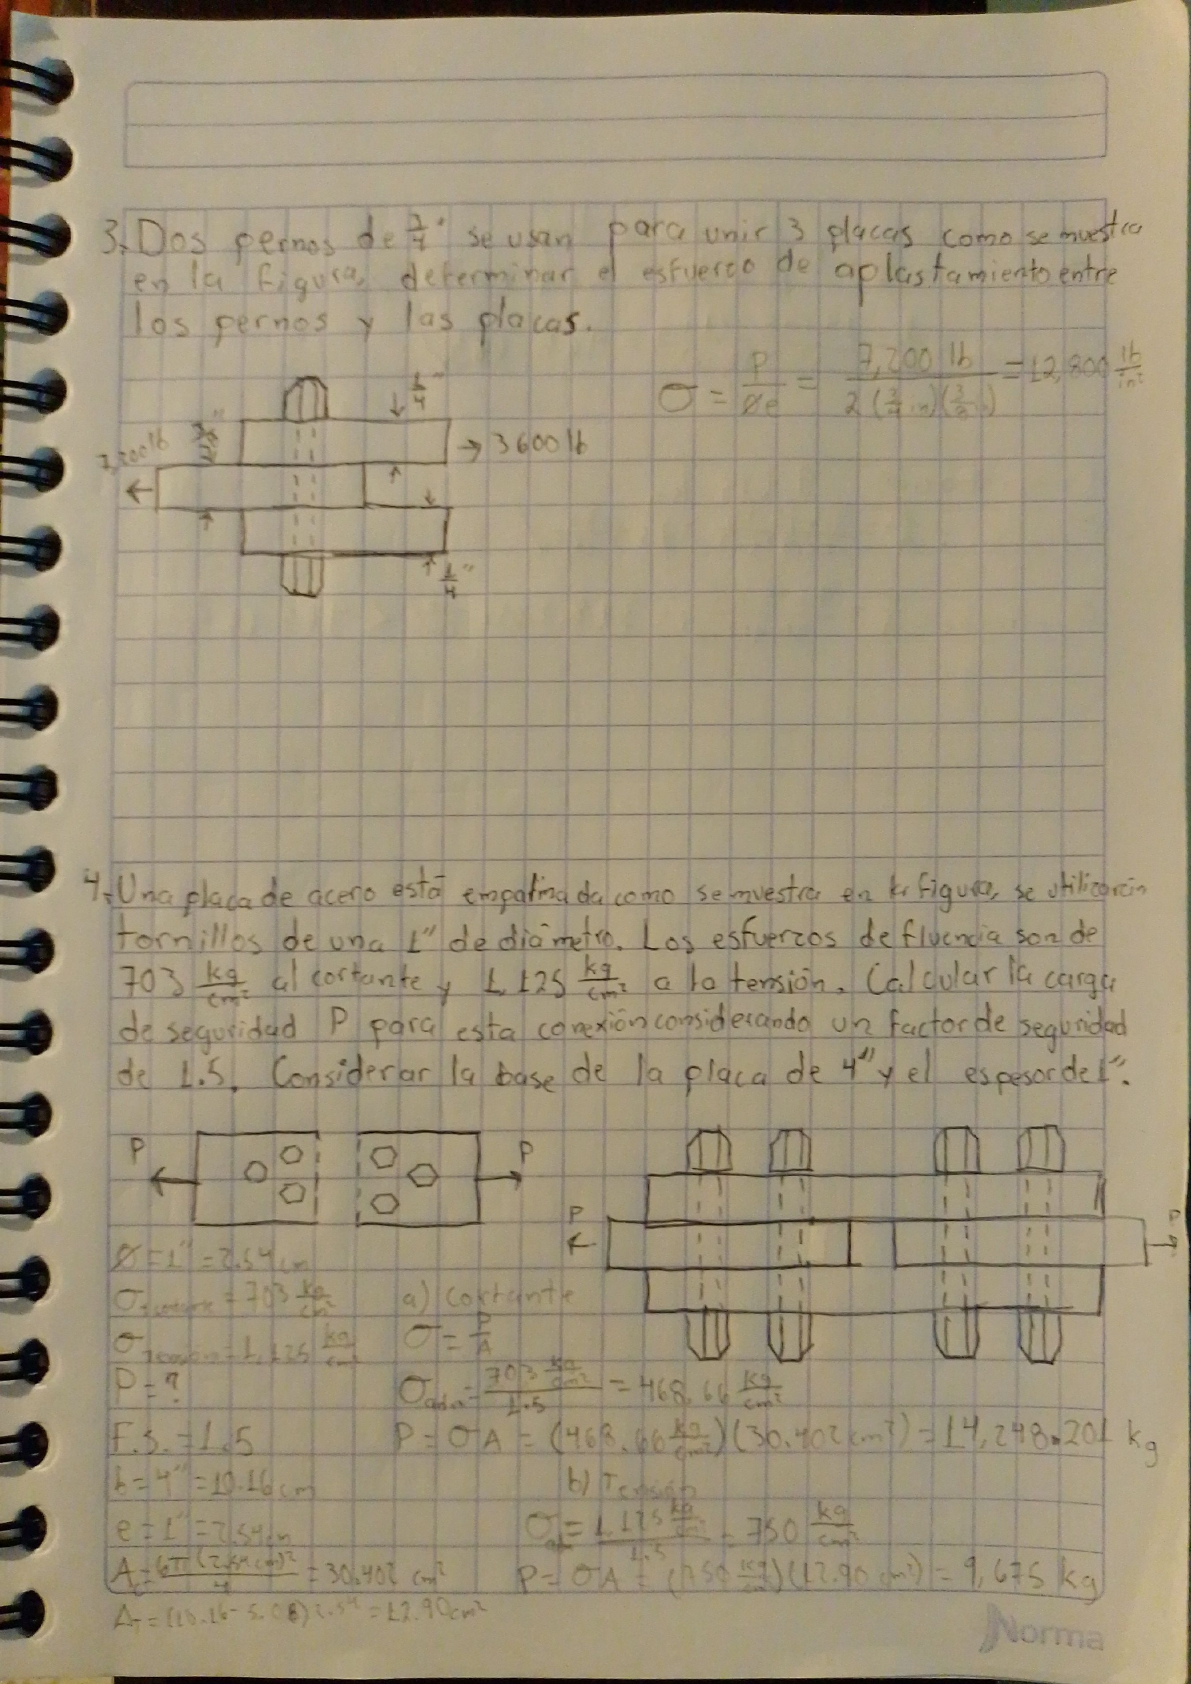 3. Dos pernos de 3/4" se usan para unir 3 placas como se muestra
en la figura, determinar el esfuerzo de aplastamiento entre
los pernos y las placas.
σ = P/øe = 7,200 lb / 2(3/4 in)(3/8 in) = 12,800 lb/in²
1/4"
3/8"
7,200 lb
3600 lb
1/4"
4. Una placa de acero está empatinada como se muestra en la figura, se utilizarán
tornillos de una 1" de diámetro. Los esfuerzos de fluencia son de
703 kg/cm² al cortante y 1,125 kg/cm² a la tensión. Calcular la carga
de seguridad P para esta conexión considerando un factor de seguridad
de 1.5. Considerar la base de la placa de 4" y el espesor de 1".
P P
P P
ø = 1" = 2.54 cm
σcortante = 703 kg/cm²
σTensión = 1,125 kg/cm²
P = ?
F.s. = 1.5
b = 4" = 10.16 cm
e = 1" = 2.54 cm
Ac = 6π(2.54 cm)²/4 = 30.402 cm²
AT = (10.16 - 5.08) 2.54 = 12.90 cm²
a) cortante
σ = P/A
σadm = 703 kg/cm² / 1.5 = 468.66 kg/cm²
P = σA = (468.66 kg/cm²)(30.402 cm²) = 14,248.201 kg
b) Tensión
σad = 1,125 kg/cm² / 1.5 = 750 kg/cm²
P = σA = (750 kg/cm²)(12.90 cm²) = 9,675 kg
Norma